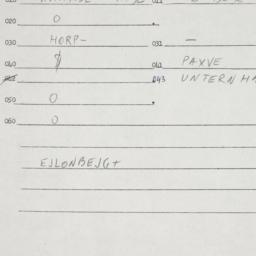 020 O
030 HORP- 031 -
040 041 PAXVE
043 UNTERNHA
050 O
060 O
EJLONBEJG+